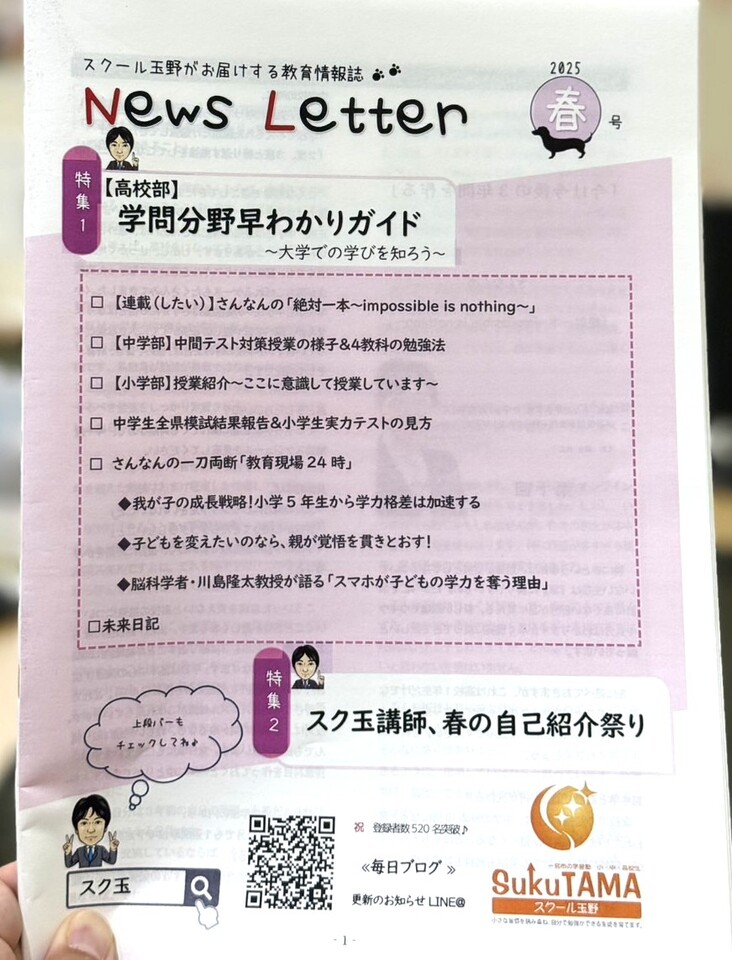 スクール玉野がお届けする教育情報誌
News Letter
2025
春
号
特集1
【高校部】
学問分野早わかりガイド
～大学での学びを知ろう～
□ 【連載（したい）】さんなんの「絶対一本～impossible is nothing～」
□ 【中学部】中間テスト対策授業の様子&4教科の勉強法
□ 【小学部】授業紹介～ここに意識して授業しています～
□ 中学生全県模試結果報告&小学生実力テストの見方
□ さんなんの一刀両断「教育現場24時」
◆我が子の成長戦略！小学5年生から学力格差は加速する
◆子どもを変えたいのなら、親が覚悟を貫きとおす！
◆脳科学者・川島隆太教授が語る「スマホが子どもの学力を奪う理由」
□未来日記
特集2
スク玉講師、春の自己紹介祭り
上段バーも
チェックしてね♪
スク玉
祝 登録者数520名突破♪
≪毎日ブログ≫
更新のお知らせLINE@
一宮市の学習塾 小・中・高校生
SukuTAMA
スクール玉野
- 1 -